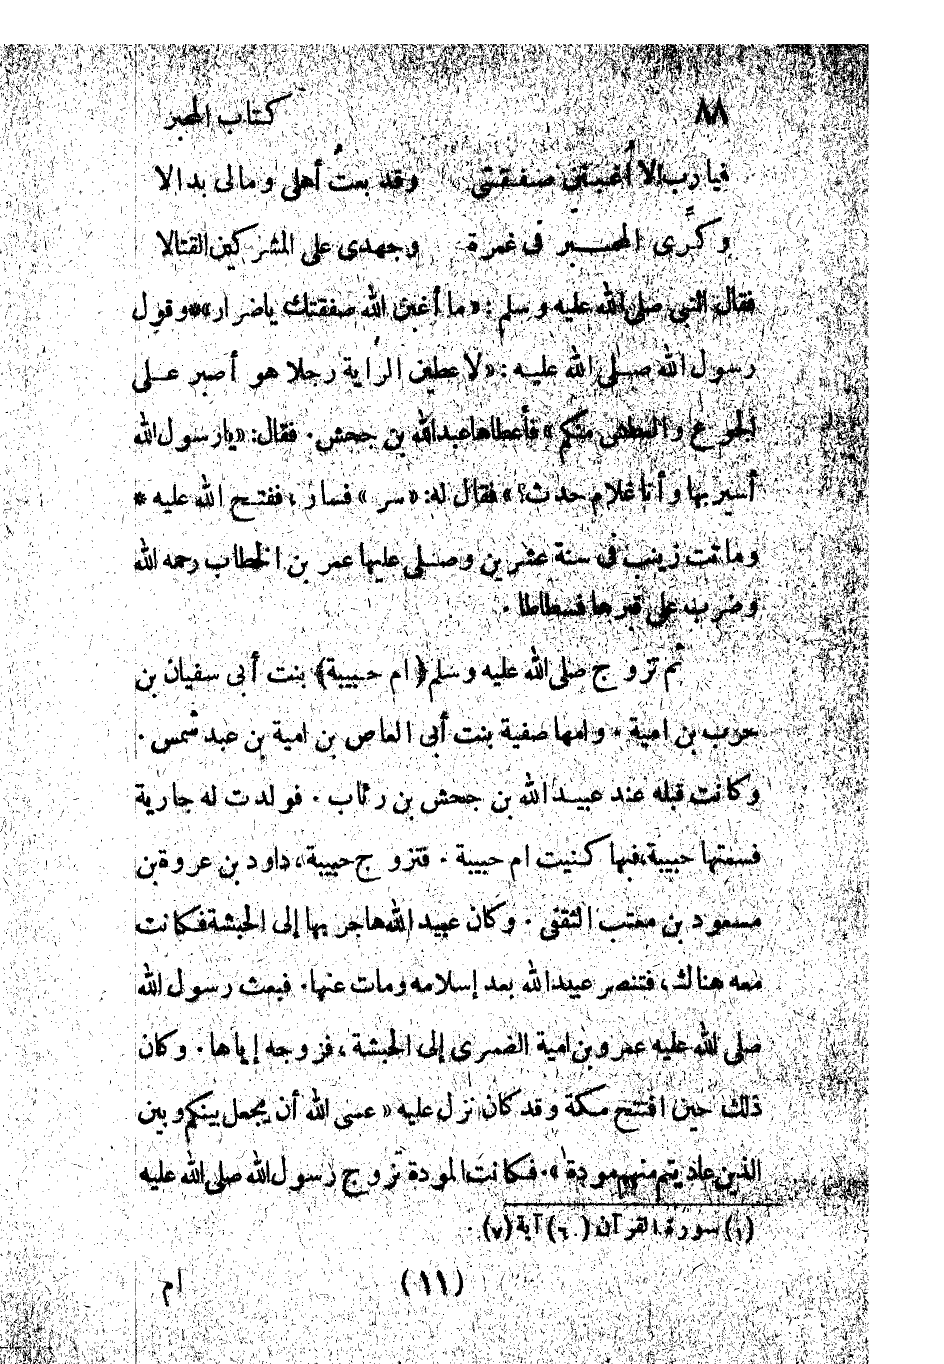 ٨٨ كتاب المحبر
فيارب لا أغبنن صفقتى وقد بعت أهلى ومالى بدالا
وكرى المحبر فى غمرة وجهدى على المشركين القتالا
فقال النبى صلى الله عليه وسلم: «ما أغبن الله صفقتك ياضرار»* وقول
رسول الله صلى الله عليه: «لاعطين الراية رجلا هو أصبر على
الجوع والعطش منكم» فأعطاها عبدالله بن جحش. فقال: «يارسول الله
أسير بها وأنا غلام حدث؟» فقال له: «سر» فسار، ففتح الله عليه *
وماتت زينب فى سنة عشرين وصلى عليها عمر بن الخطاب رحمه الله
وضرب على قبرها فسطاطا.
ثم تزوج صلى الله عليه وسلم (ام حبيبة) بنت أبى سفيان بن
حرب بن امية. وامها صفية بنت أبى العاص بن امية بن عبد شمس.
وكانت قبله عند عبيد الله بن جحش بن رئاب. فولدت له جارية
فسمتها حبيبة، فبها كنيت ام حبيبة. فتزوج حبيبة، داود بن عروة بن
مسعود بن معتب الثقفى. وكان عبيد الله هاجر بها إلى الحبشة فكانت
معه هناك، فتنصر عبيدالله بعد إسلامه ومات عنها. فبعث رسول الله
صلى الله عليه عمرو بن امية الضمرى إلى الحبشة، فزوجه إياها. وكان
ذلك حين افتتح مكة وقد كان نزل عليه «عسى الله أن يجعل بينكم وبين
الذين عاديتم منهم مودة». فكانت المودة تزوج رسول الله صلى الله عليه
(١) سورة القرآن (٦٠) آية (٧).
(١١) ام